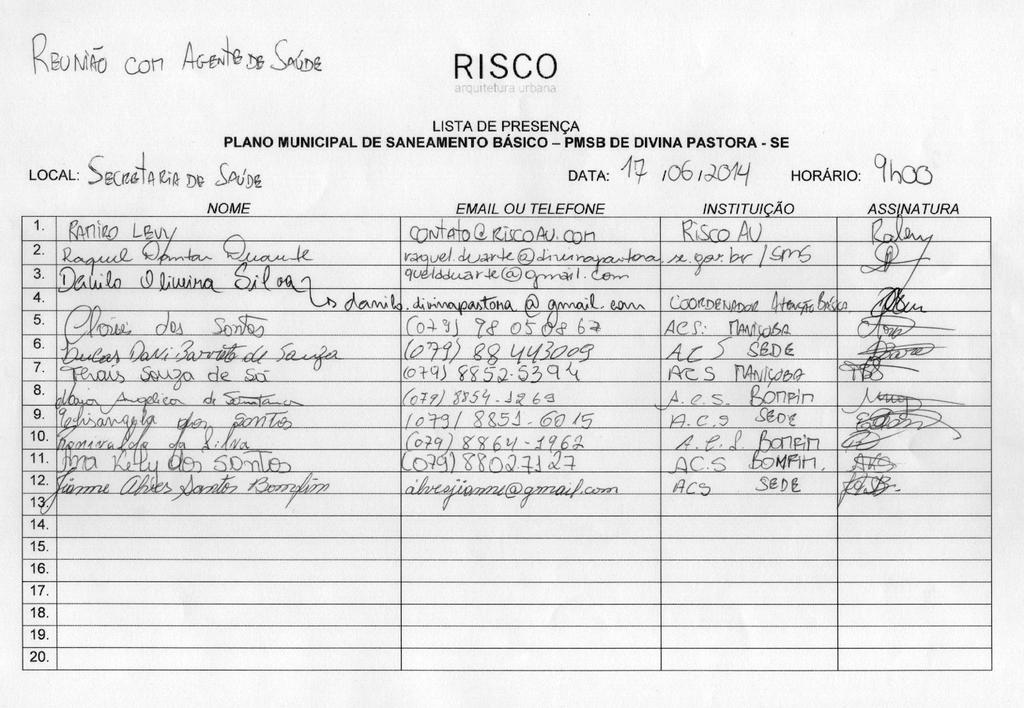 REUNIÃO COM AGENTE DE SAÚDE
RISCO
arquitetura urbana
LISTA DE PRESENÇA
PLANO MUNICIPAL DE SANEAMENTO BÁSICO – PMSB DE DIVINA PASTORA - SE
LOCAL: SECRETARIA DE SAÚDE DATA: 17 /06/2014 HORÁRIO: 9h00
NOME EMAIL OU TELEFONE INSTITUIÇÃO ASSINATURA
1. RAMIRO LEVY CONTATO@RISCOAU.COM RISCO AU
2. Raquel Dantas Duarte raquel.duarte@divinapastora.se.gov.br/SMS
3. Danilo Oliveira Silva quelduarte@gmail.com
4. danilo.divinapastora@gmail.com COORDENADOR Atenção Básica
5. dos Santos (079) 98050867 ACS: MANIÇOBA
6. Lucas Davi Barreto de Souza (079) 88443009 ACS SEDE
7. Terais Souza de Sá (079) 8852-5394 ACS MANIÇOBA
8. Maria Angélica de Santana (079) 8854-1269 A.C.S. BOMFIM
9. Elisangela dos Santos (079) 8851-6015 A.C.S SEDE
10. da Silva (079) 8864-1962 A.C.S. BOMFIM
11. Ana Kelly dos SANTOS (079) 8802.7127 AC.S BOMFIM.
12. Jianne Alves Santos Bomfim alvesjianne@gmail.com ACS SEDE
13.
14.
15.
16.
17.
18.
19.
20.